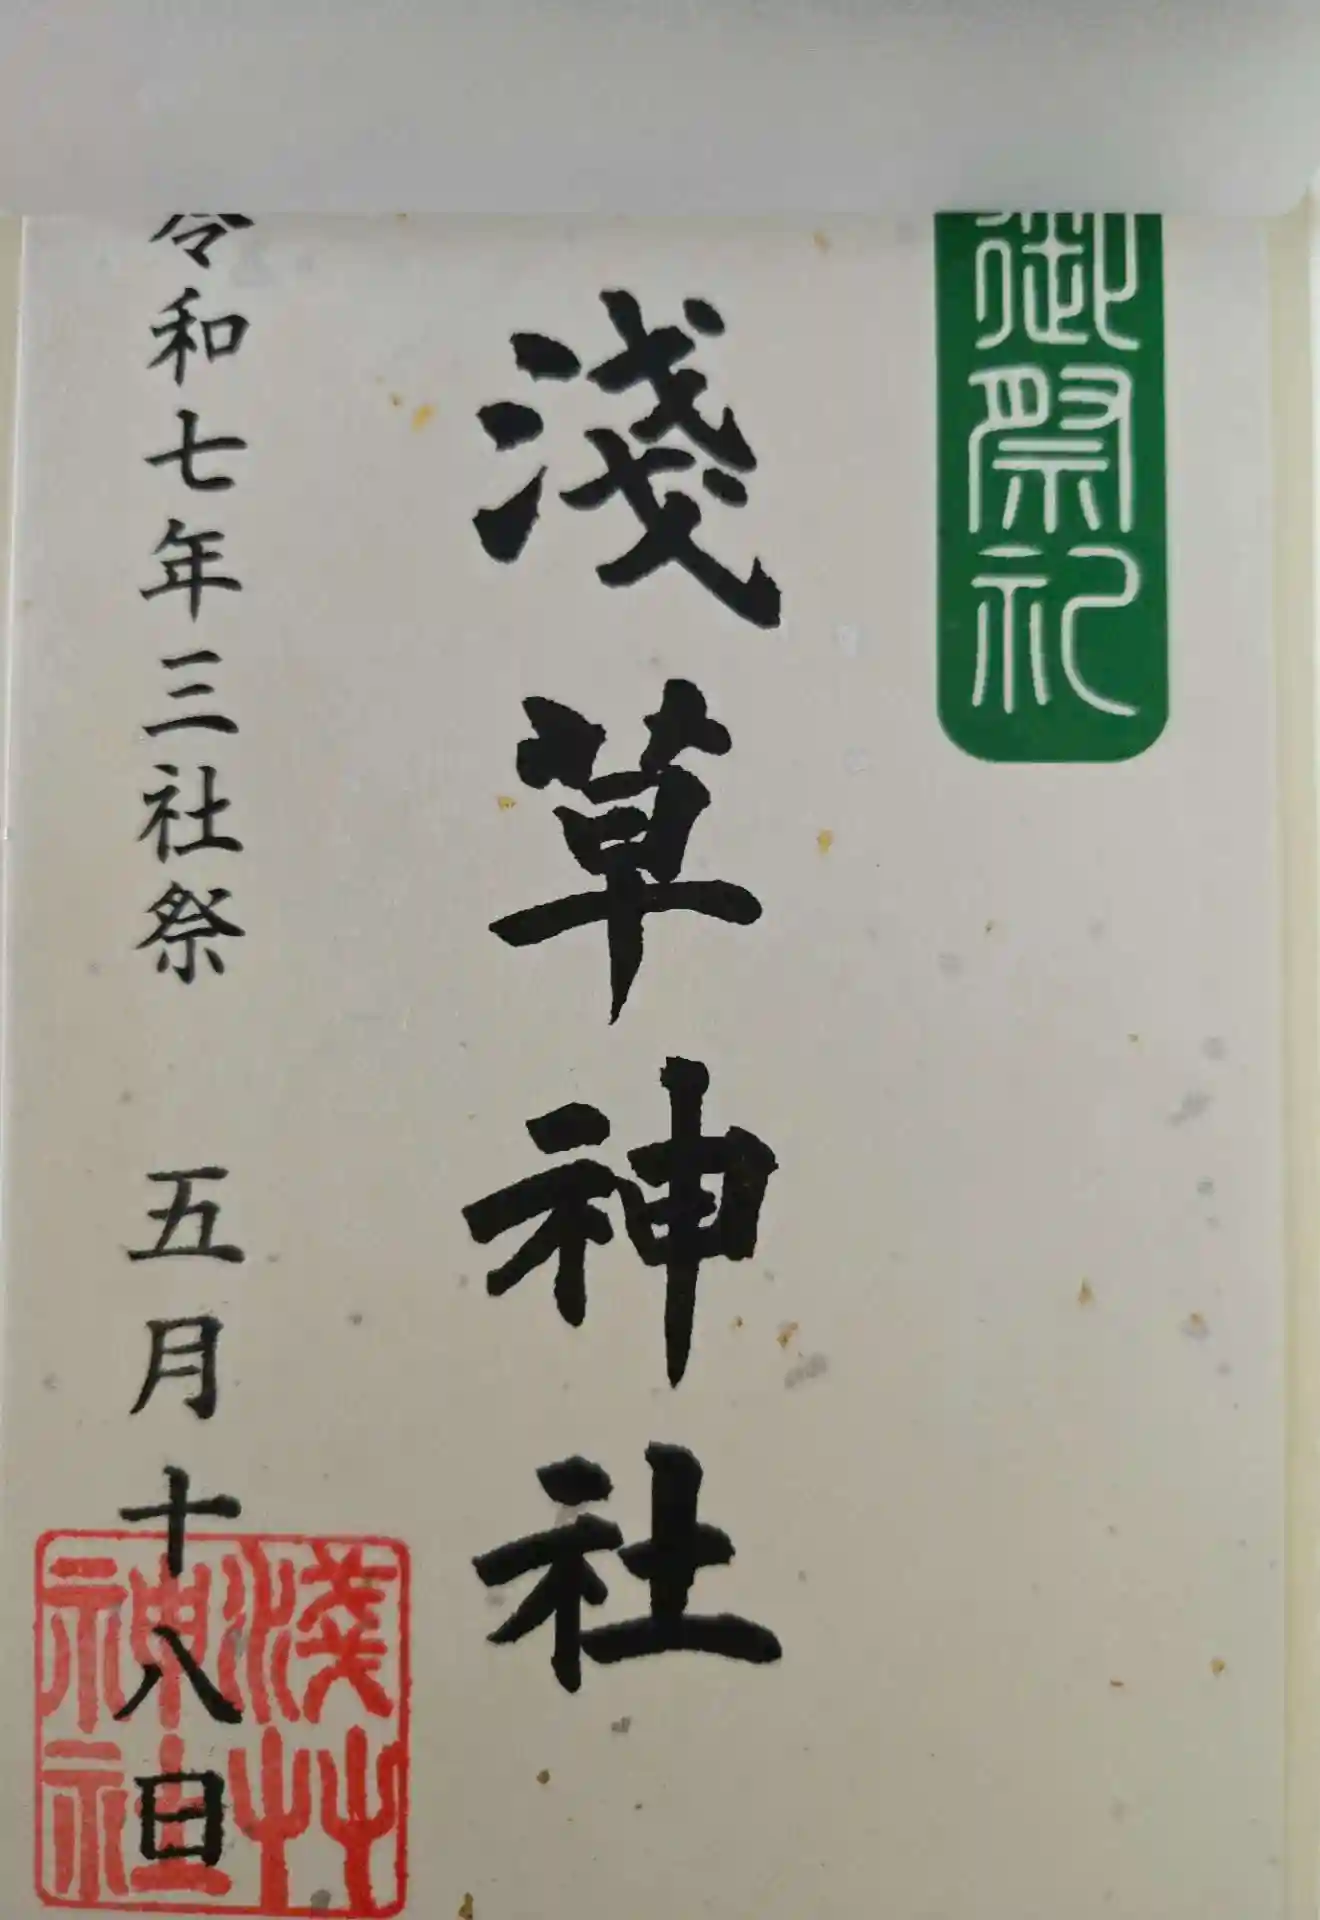 御祭礼
淺草神社
令和七年三社祭 五月十八日
淺艸
神社